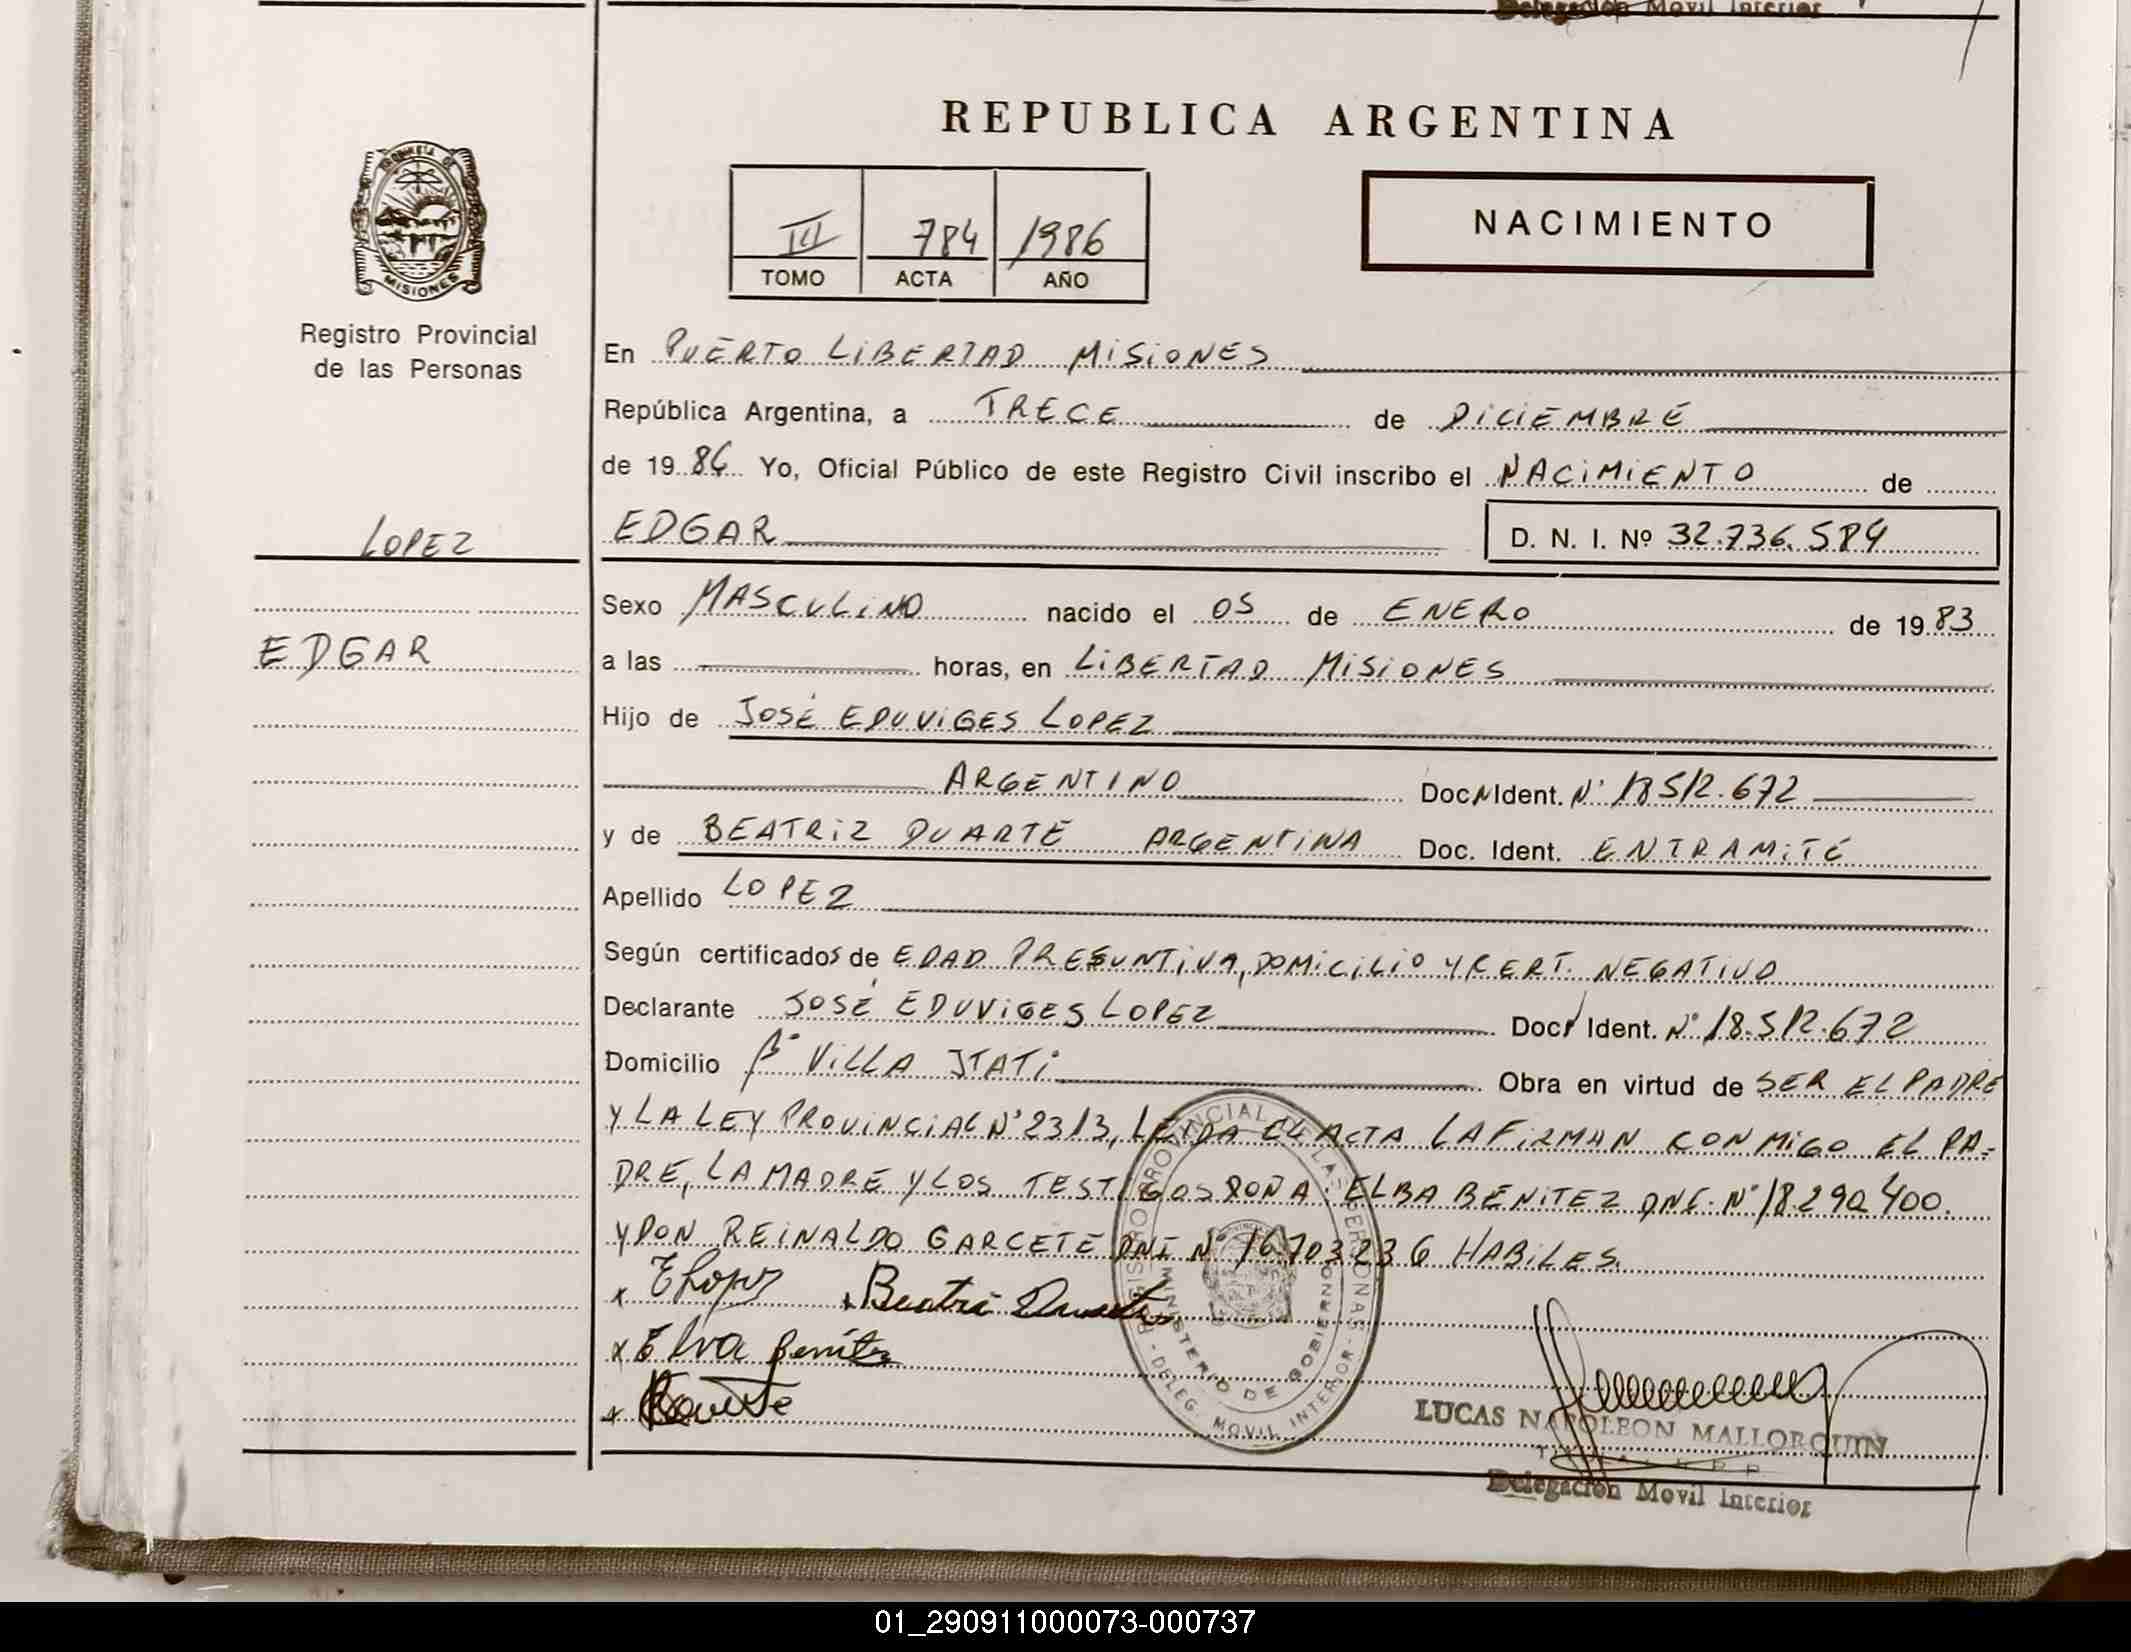 Delegación Movil Interior
REPUBLICA ARGENTINA
PROVINCIA DE
MISIONES
III 784 1986
TOMO ACTA AÑO
NACIMIENTO
Registro Provincial
de las Personas
En PUERTO LIBERTAD MISIONES
República Argentina, a TRECE de DICIEMBRE
de 1986 Yo, Oficial Público de este Registro Civil inscribo el NACIMIENTO de
LOPEZ
EDGAR D. N. I. Nº 32.736.584
Sexo MASCULINO nacido el 05 de ENERO de 1983
EDGAR
a las horas, en LIBERTAD MISIONES
Hijo de JOSÉ EDUVIGES LOPEZ
ARGENTINO Doc. Ident. N° 18.512.672
y de BEATRIZ DUARTE ARGENTINA Doc. Ident. EN TRAMITE
Apellido LOPEZ
Según certificados de EDAD PRESUNTIVA, DOMICILIO Y CERT. NEGATIVO
Declarante JOSÉ EDUVIGES LOPEZ Doc. Ident. N° 18.512.672
Domicilio B° VILLA ITATI Obra en virtud de SER EL PADRE
Y LA LEY PROVINCIAL N° 2313, LEIDA EL ACTA LA FIRMAN CONMIGO EL PA=
DRE, LA MADRE Y LOS TESTIGOS DOÑA ELBA BENITEZ DNI. N° 18.290.400.
Y DON REINALDO GARCETE DNI N° 16.703.236 HABILES.
x E Lopez x Beatri Duarte
x Elva Benítez
x
REGISTRO PROVINCIAL DE LAS PERSONAS - DELEG. MOVIL INTERIOR -
MINISTERIO DE GOBIERNO
LUCAS NAPOLEON MALLORQUIN
Delegación Movil Interior
01_290911000073-000737